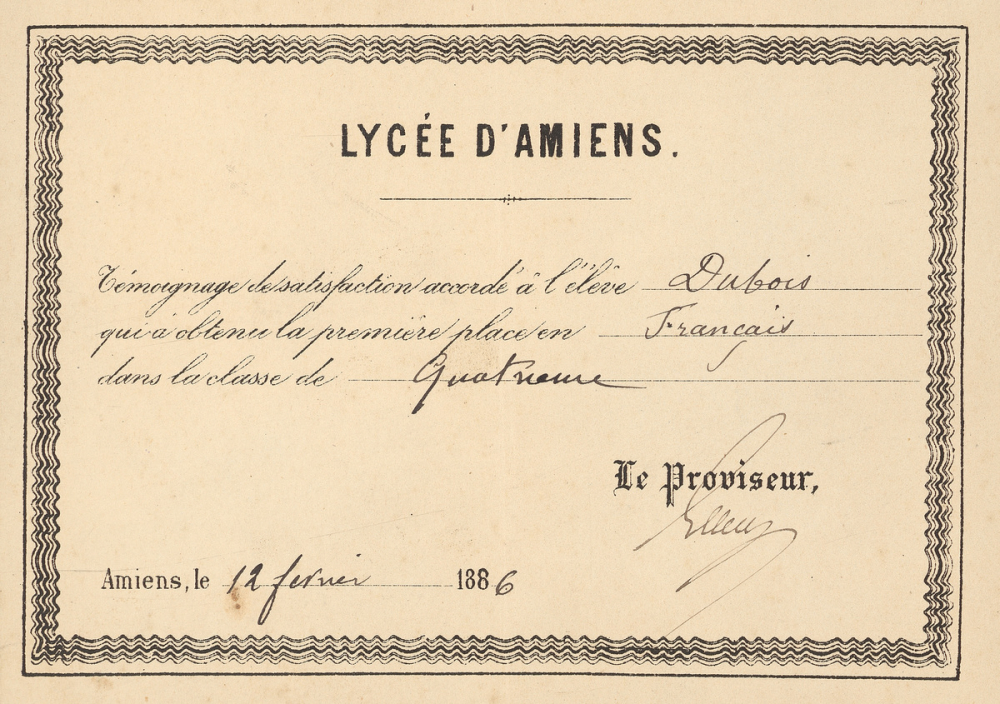 LYCÉE D'AMIENS.
Témoignage de satisfaction accordé à l'élève Dubois
qui a obtenu la première place en Français
dans la classe de Quatrieme
Le Proviseur,
Amiens, le 12 fevrier 1886